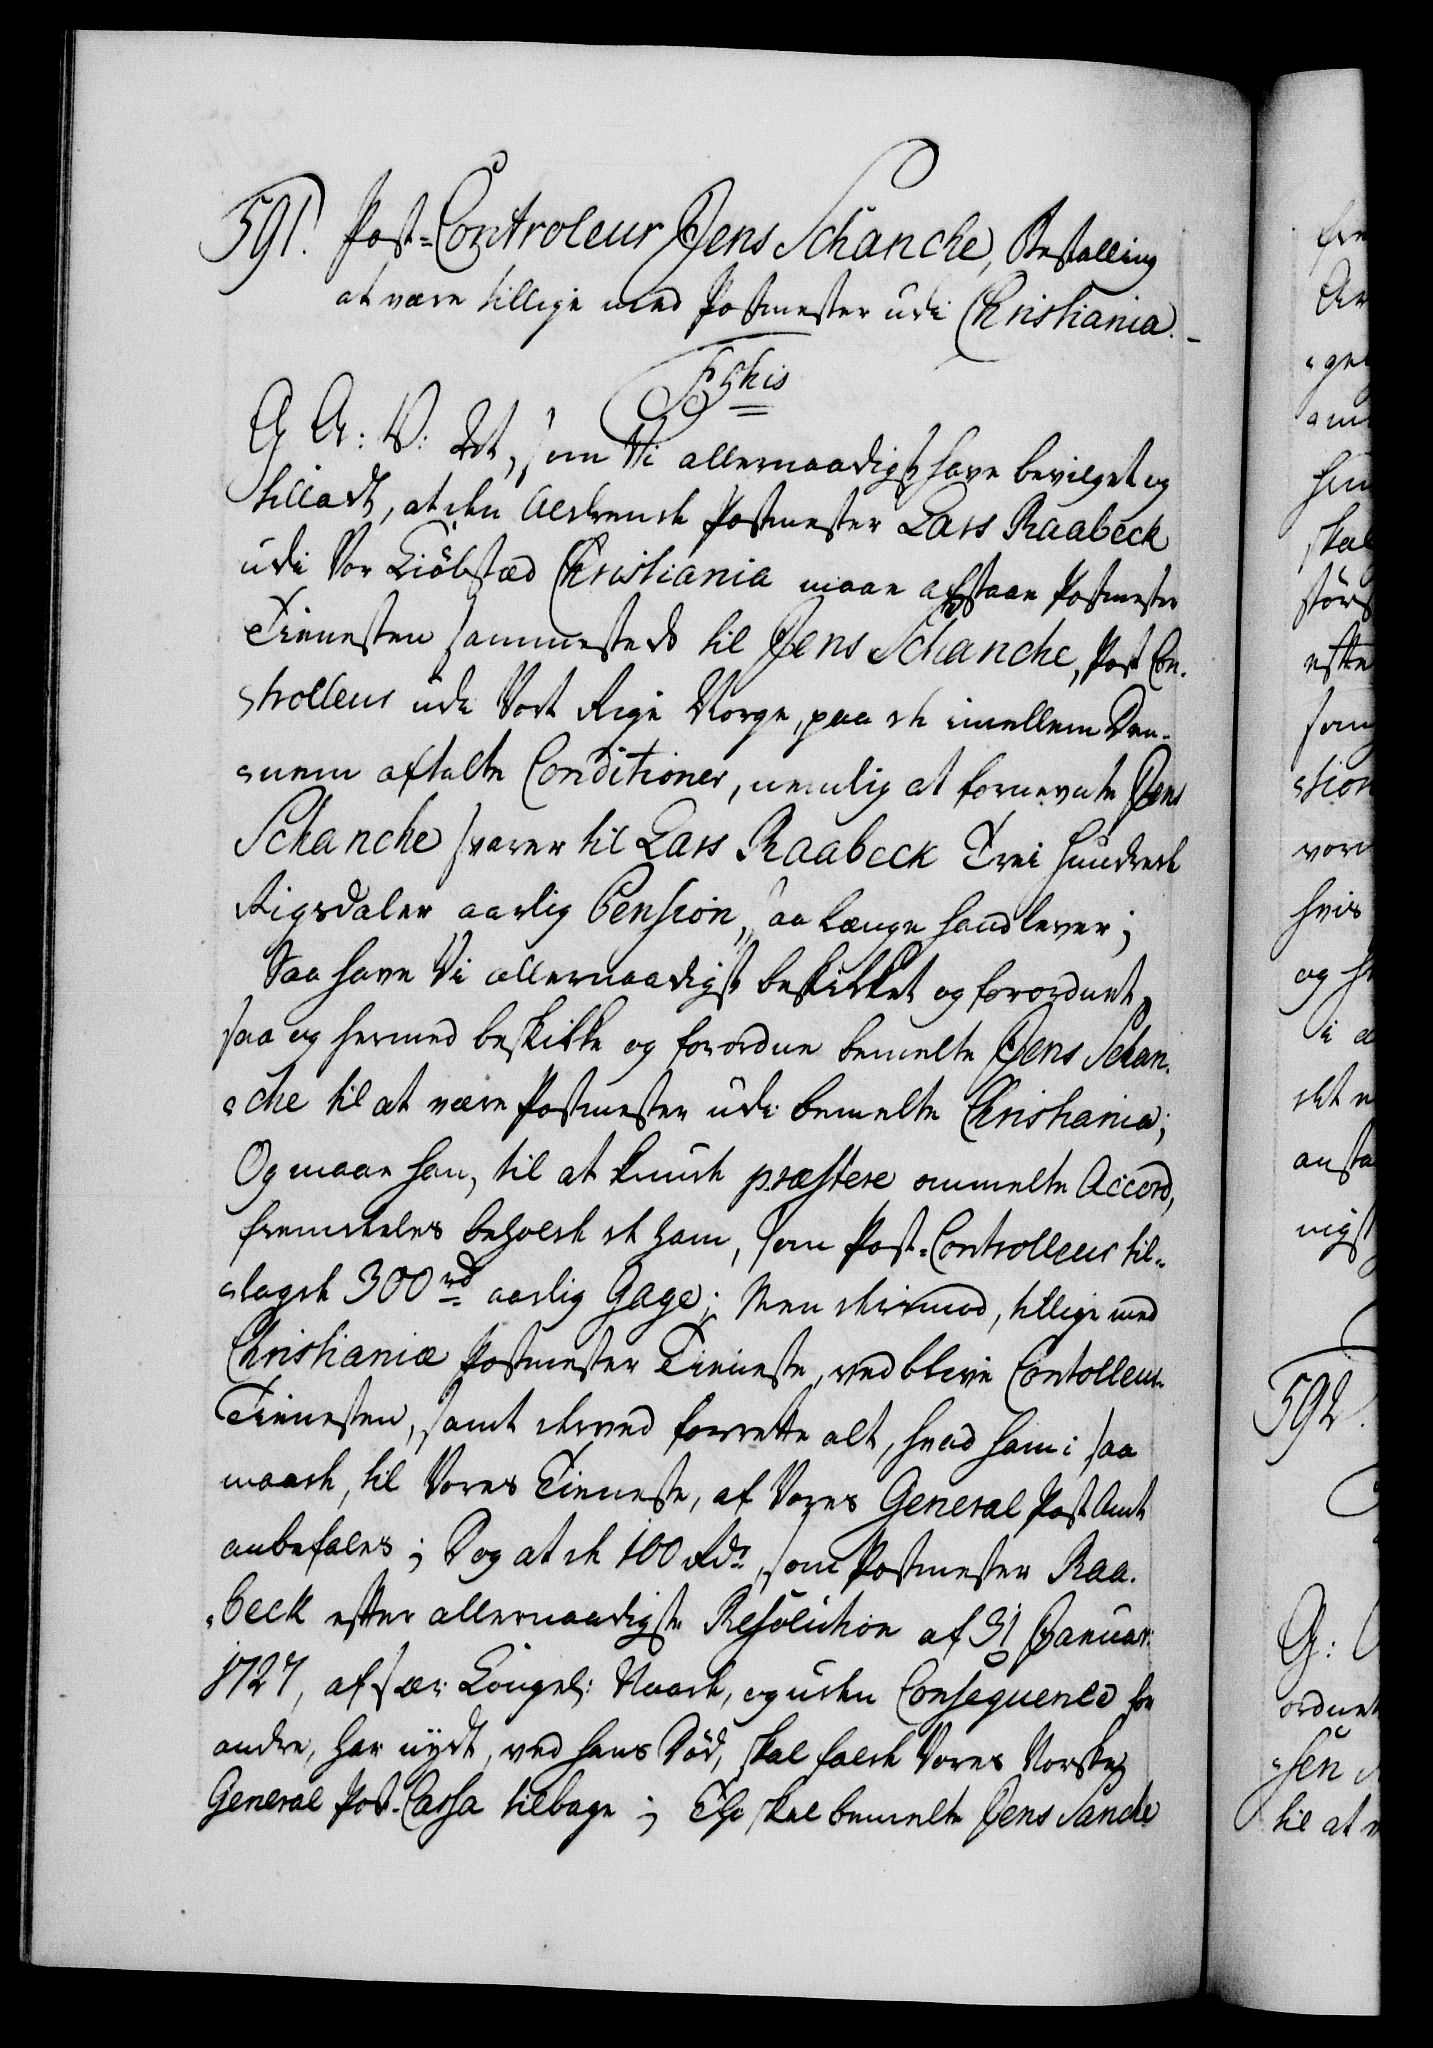 591. Post-Controleur Jens Schanche, Bestalling
at være tillige med Postmester udi Christiania.
F 5tus
G A: V: At, som Vi allernaadigst have bevilget og
tilladt, at den Aldrende Postmester Lars Raabeck
udi Vor Kiöbstæd Christiania maae afstaae Postmester
Tienesten sammesteds til Jens Schanche, Post Con-
trolleur udi Vort Rige Norge, paa de imellem Den-
nem aftalte Conditioner, nemlig at fornevnte Jens
Schanche svarer til Lars Raabeck Trei Hundrede
Rigsdaler aarlig Pension, saa længe hand lever;
Saa have Vi allernaadigst beskikket og forordnet,
saa og hermed beskikke og forordne bemelte Jens Schan-
che til at være Postmester udi bemelte Christiania;
Og maae han, til at kunde præstere ommelte Accord,
fremdeles beholde de ham, som Post-Controlleur til-
lagde 300 rd aarlig Gage; Men derimod, tillige med
Christiania Postmester Tieneste, ved blive Contolleur-
Tienesten, samt derved forrette alt, hvad ham i saa
maade, til Vores Tieneste, af Vores General Post Amt
anbefales; Dog at de 100 Rdr, som Postmester Raa-
beck efter allernaadigste Resolution af 31 Januar:
1727, af sær Kongel: Naade, og uden Consequence for
andre, har nydt, ved hans Död, skal falde Vores Norske
General Post-Cassa tilbage; Ellers skal bemelte Jens Sanche
592.